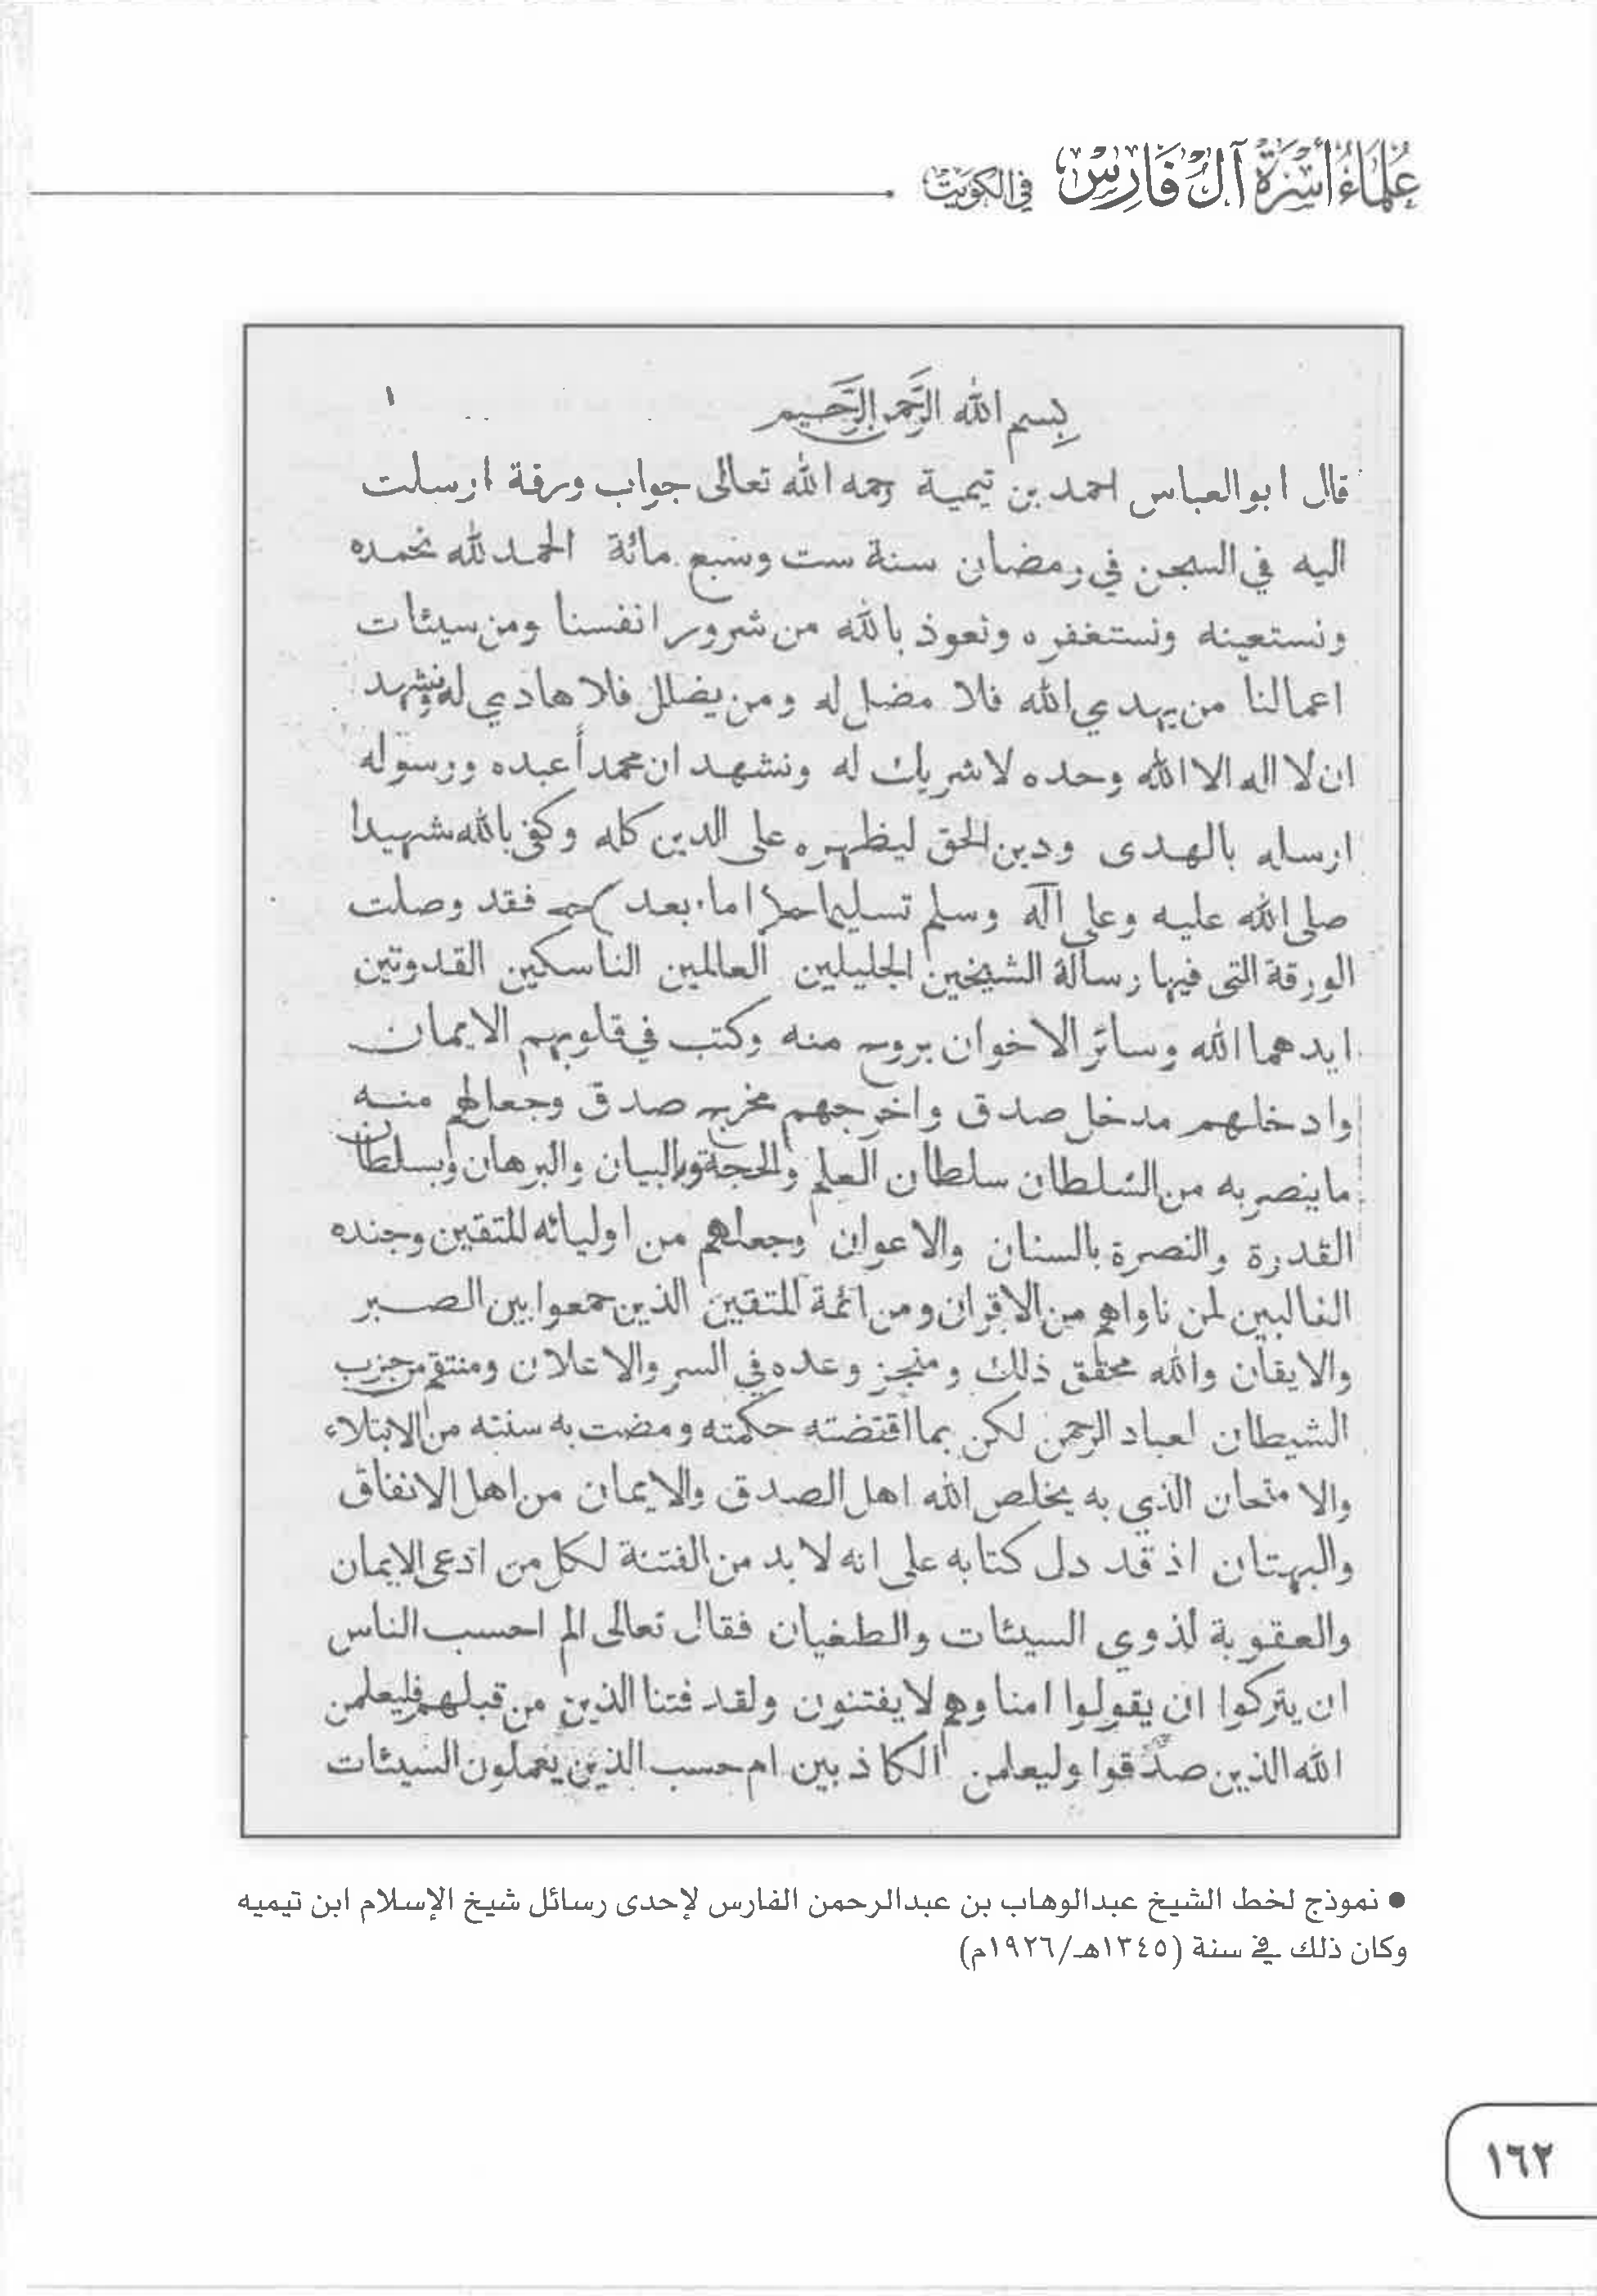 عُلَمَاءُ أُسْرَةِ آلِ فَارِسٍ في الكويت
١
بسم الله الرحمن الرحيم
قال ابو العباس احمد بن تيمية رحمه الله تعالى جواب ورقة ارسلت
اليه في السجن في رمضان سنة ست وسبع مائة الحمد لله نحمده
ونستعينه ونستغفره ونعوذ بالله من شرور انفسنا ومن سيئات
اعمالنا من يهدي الله فلا مضل له ومن يضلل فلا هادي له ونشهد
ان لا اله الا الله وحده لا شريك له ونشهد ان محمدأ عبده ورسوله
ارسله بالهدى ودين الحق ليظهره على الدين كله وكفى بالله شهيدا
صلى الله عليه وعلى آله وسلم تسليما اما بعد فقد وصلت
الورقة التى فيها رسالة الشيخين الجليلين العالمين الناسكين القدوتين
ايدهما الله وسائر الاخوان بروح منه وكتب في قلوبهم الايمان
وادخلهم مدخل صدق واخرجهم مخرج صدق وجعل لهم منه
ما ينصر به من السلطان سلطان العلم والحجة والبيان والبرهان وبسلطان
القدرة والنصرة بالسنان والاعوان وجعلهم من اوليائه المتقين وجنده
الغالبين لمن ناواهم من الاقران ومن ائمة المتقين الذين جمعوا بين الصبر
والايقان والله محقق ذلك ومنجز وعده في السر والاعلان ومنتقم من حزب
الشيطان لعباد الرحمن لكن بما اقتضته حكمته ومضت به سنته من الابتلاء
والامتحان الذي به يخلص الله اهل الصدق والايمان من اهل الانفاق
والبهتان اذ قد دل كتابه على انه لا بد من الفتنة لكل من ادعى الايمان
والعقوبة لذوي السيئات والطغيان فقال تعالى الم احسب الناس
ان يتركوا ان يقولوا امنا وهم لا يفتنون ولقد فتنا الذين من قبلهم فليعلمن
الله الذين صدقوا وليعلمن الكاذبين ام حسب الذين يعملون السيئات
● نموذج لخط الشيخ عبدالوهاب بن عبدالرحمن الفارس لإحدى رسائل شيخ الإسلام ابن تيميه
وكان ذلك في سنة (١٣٤٥هـ/١٩٢٦م)
١٦٢